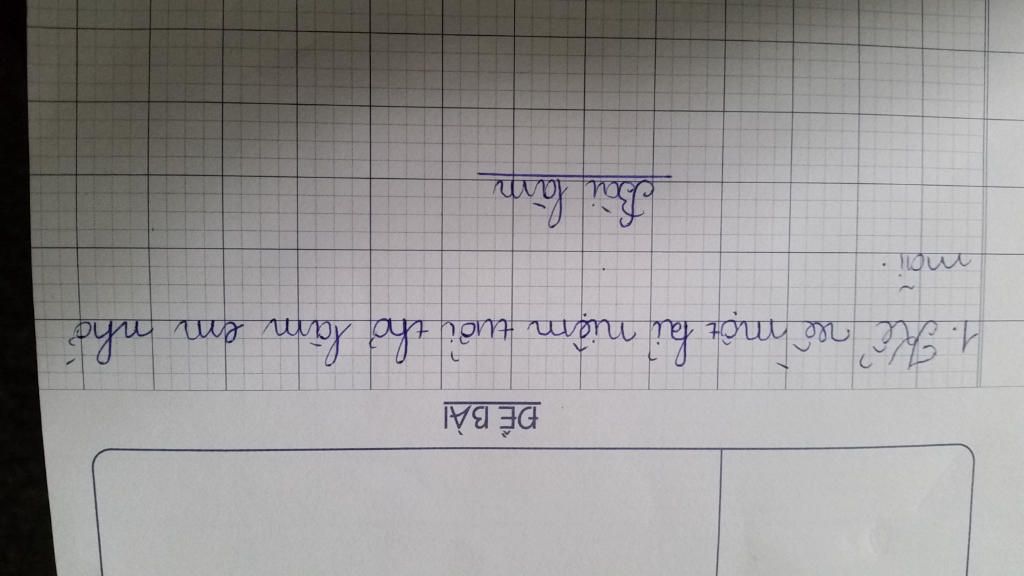 ĐỀ BÀI
1. Kể về một kỉ niệm tuổi thơ làm em nhớ
mãi.
Bài làm